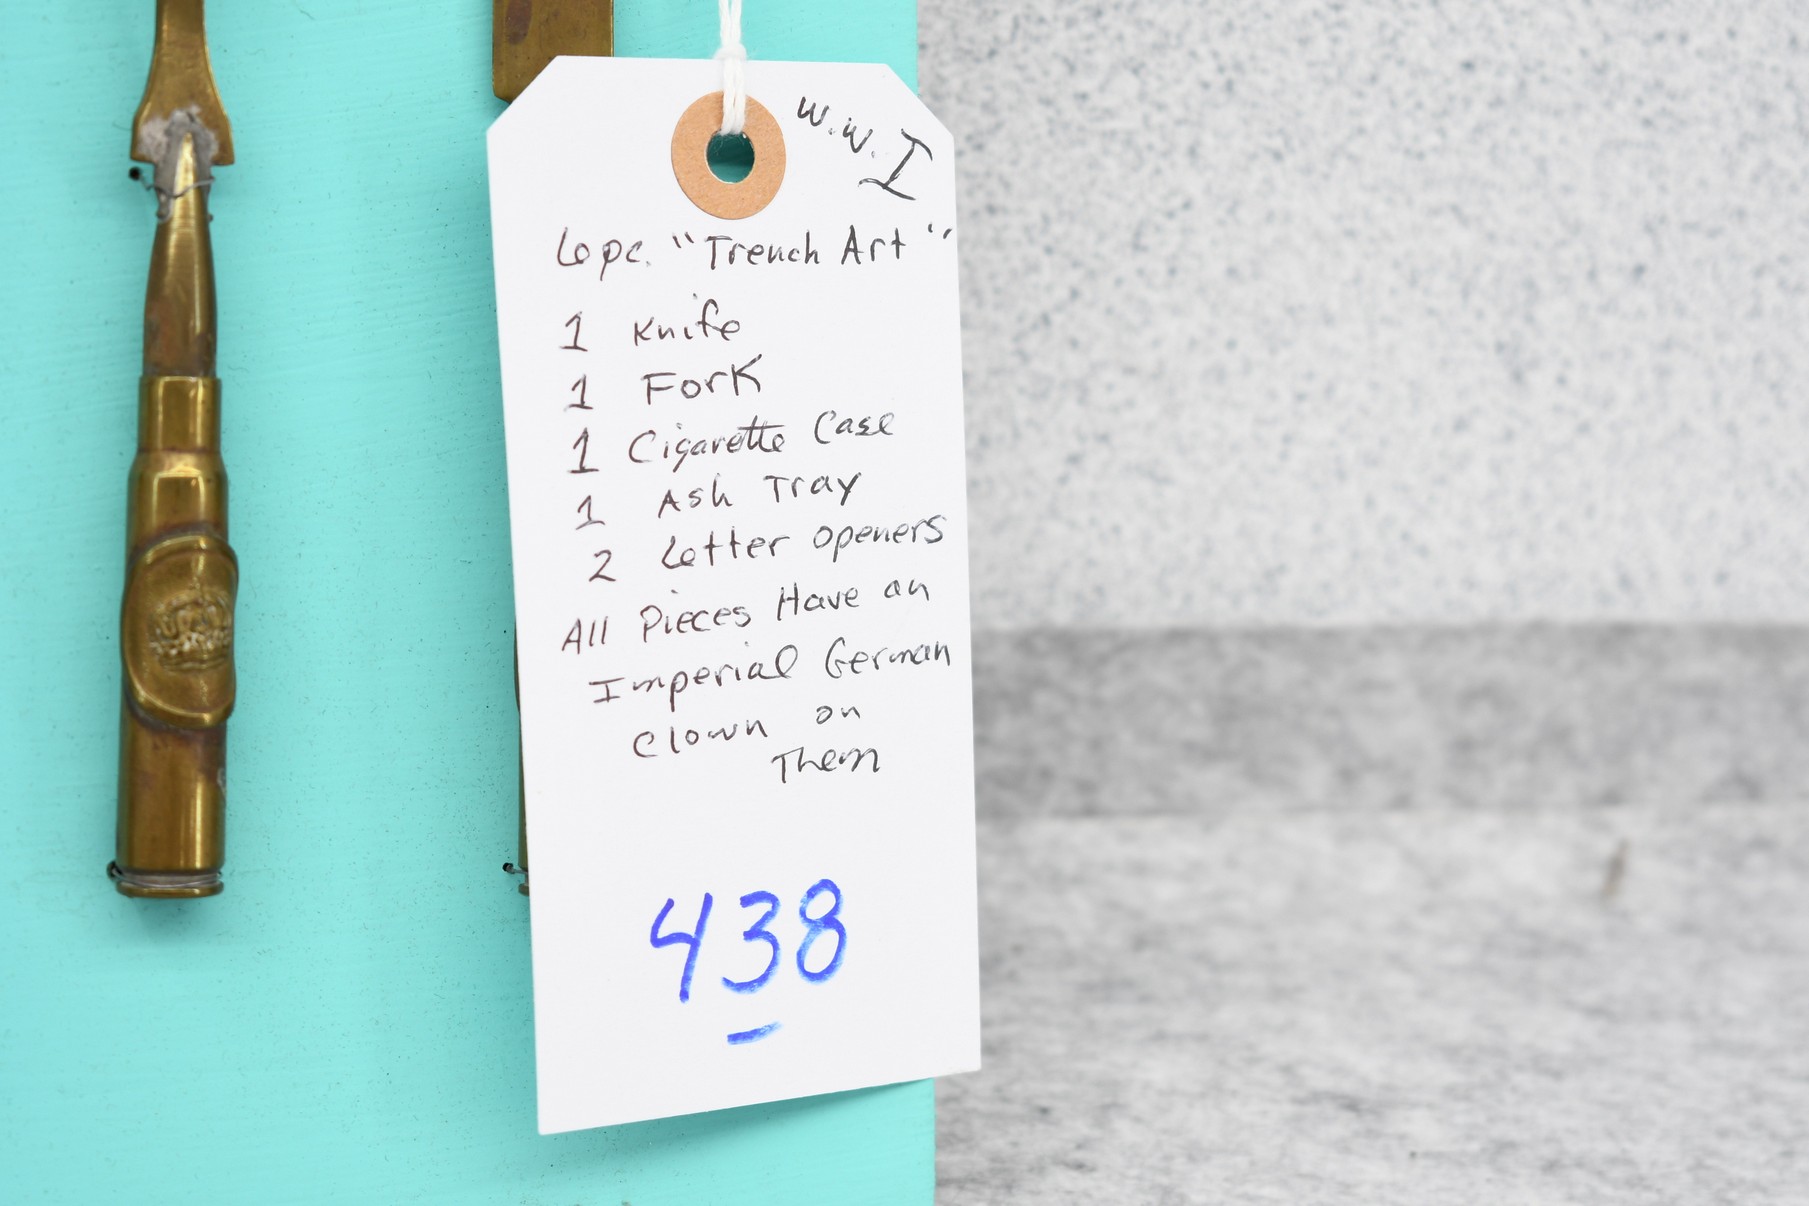 W.W.I
6 pc. "Trench Art"
1 Knife
1 Fork
1 Cigarette Case
1 Ash Tray
2 Letter openers
All Pieces Have an
Imperial German
Clown on
Them
438